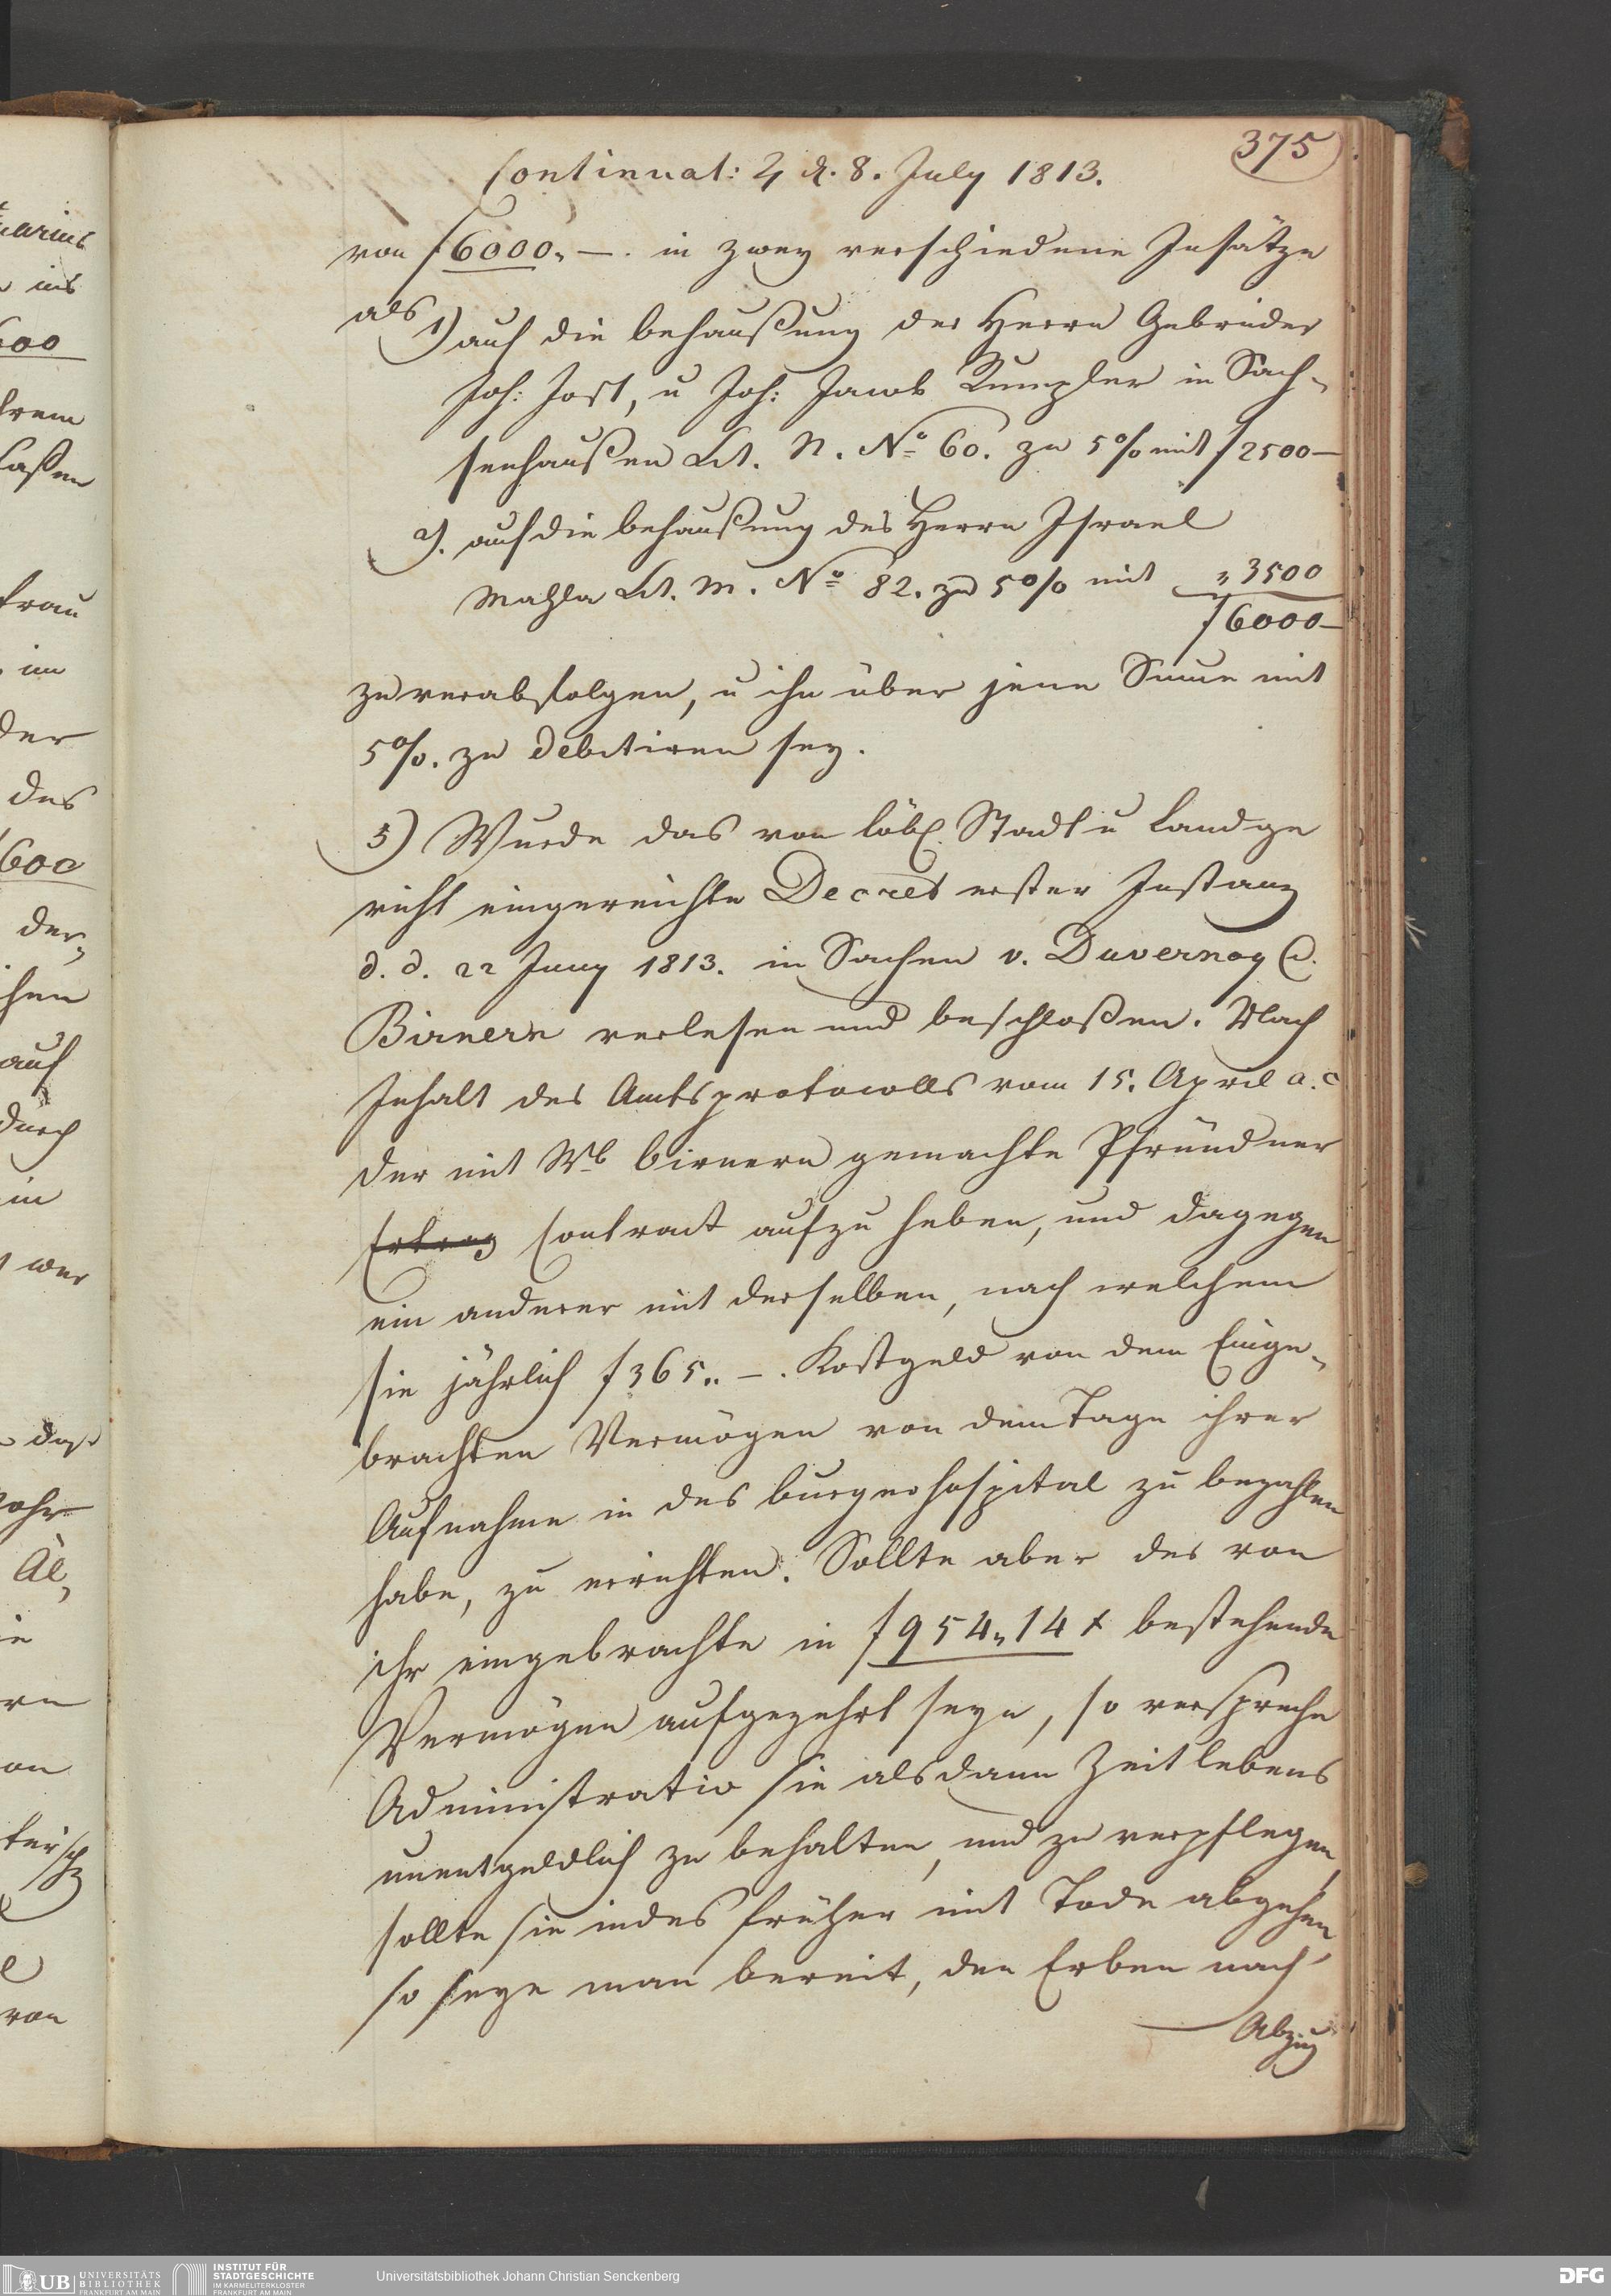 375
Continuat: ♃ d. 8. July 1813.
von f 6000„ —. in zwey verschiedene Insätze
als
1) auf die behaußung der Herrn Gebrüder
Joh: Jost, u Joh: Jacob Rumpler in Sach-
senhaußen Lit. N. No 60. zu 5 % mit f 2500 —
2). auf die behaußung des Herrn Israel
Mahla Lit. M. No 82. zu 5 % mit „ 3500
f 6000 —
zu verabfolgen, u ihn über jene Sume mit
5 %. zu debitiren sey.
5) Wurde das von löbl. Stadt u Landge
richt eingereichte Decret erster Instanz
d. d. 22 Juny 1813. in Sachen v. Duvernoy C.
Birnern verlesen und beschloßen. Nach
Inhalt des Amtsprotocolls vom 15. April a. c
der mit Wb birnern gemachte Pfründner
Contract aufzu heben, und dagegen
ein anderer mit derselben, nach welchem
sie jährlich f 365„ —. Kostgeld von dem Einge-
brachten Vermögen von dem Tage ihrer
Aufnahme in das burgerhospital zu bezahlen
habe, zu errichten. Sollte aber das von
ihr eingebrachte in f 954„ 14 x bestehende
Vermögen aufgezehrt seyn, so verspreche
Administratio sie alsdann Zeit lebens
unentgeldlich zu behalten, und zu verpflegen,
sollte sie indes früher mit Tode abgehen,
so seye man bereit, den Erben nach
Abzug
ins
600
auf
durch
in
der
des
600
von
UB UNIVERSITÄTS
BIBLIOTHEK
FRANKFURT AM MAIN
INSTITUT FÜR
STADTGESCHICHTE
IM KARMELITERKLOSTER
FRANKFURT AM MAIN
Universitätsbibliothek Johann Christian Senckenberg
DFG